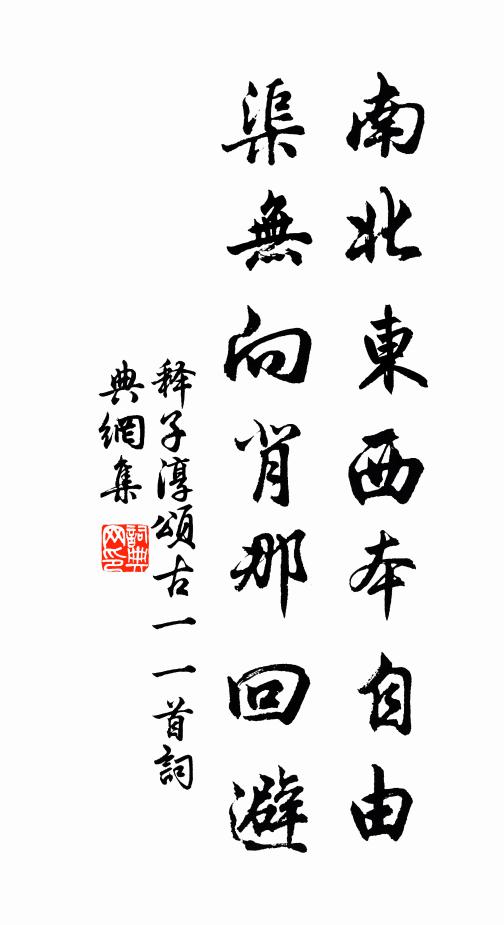 南北東西本自由
渠無向背那回避
释子淳頌古一一首詞
典網集
詞典网印